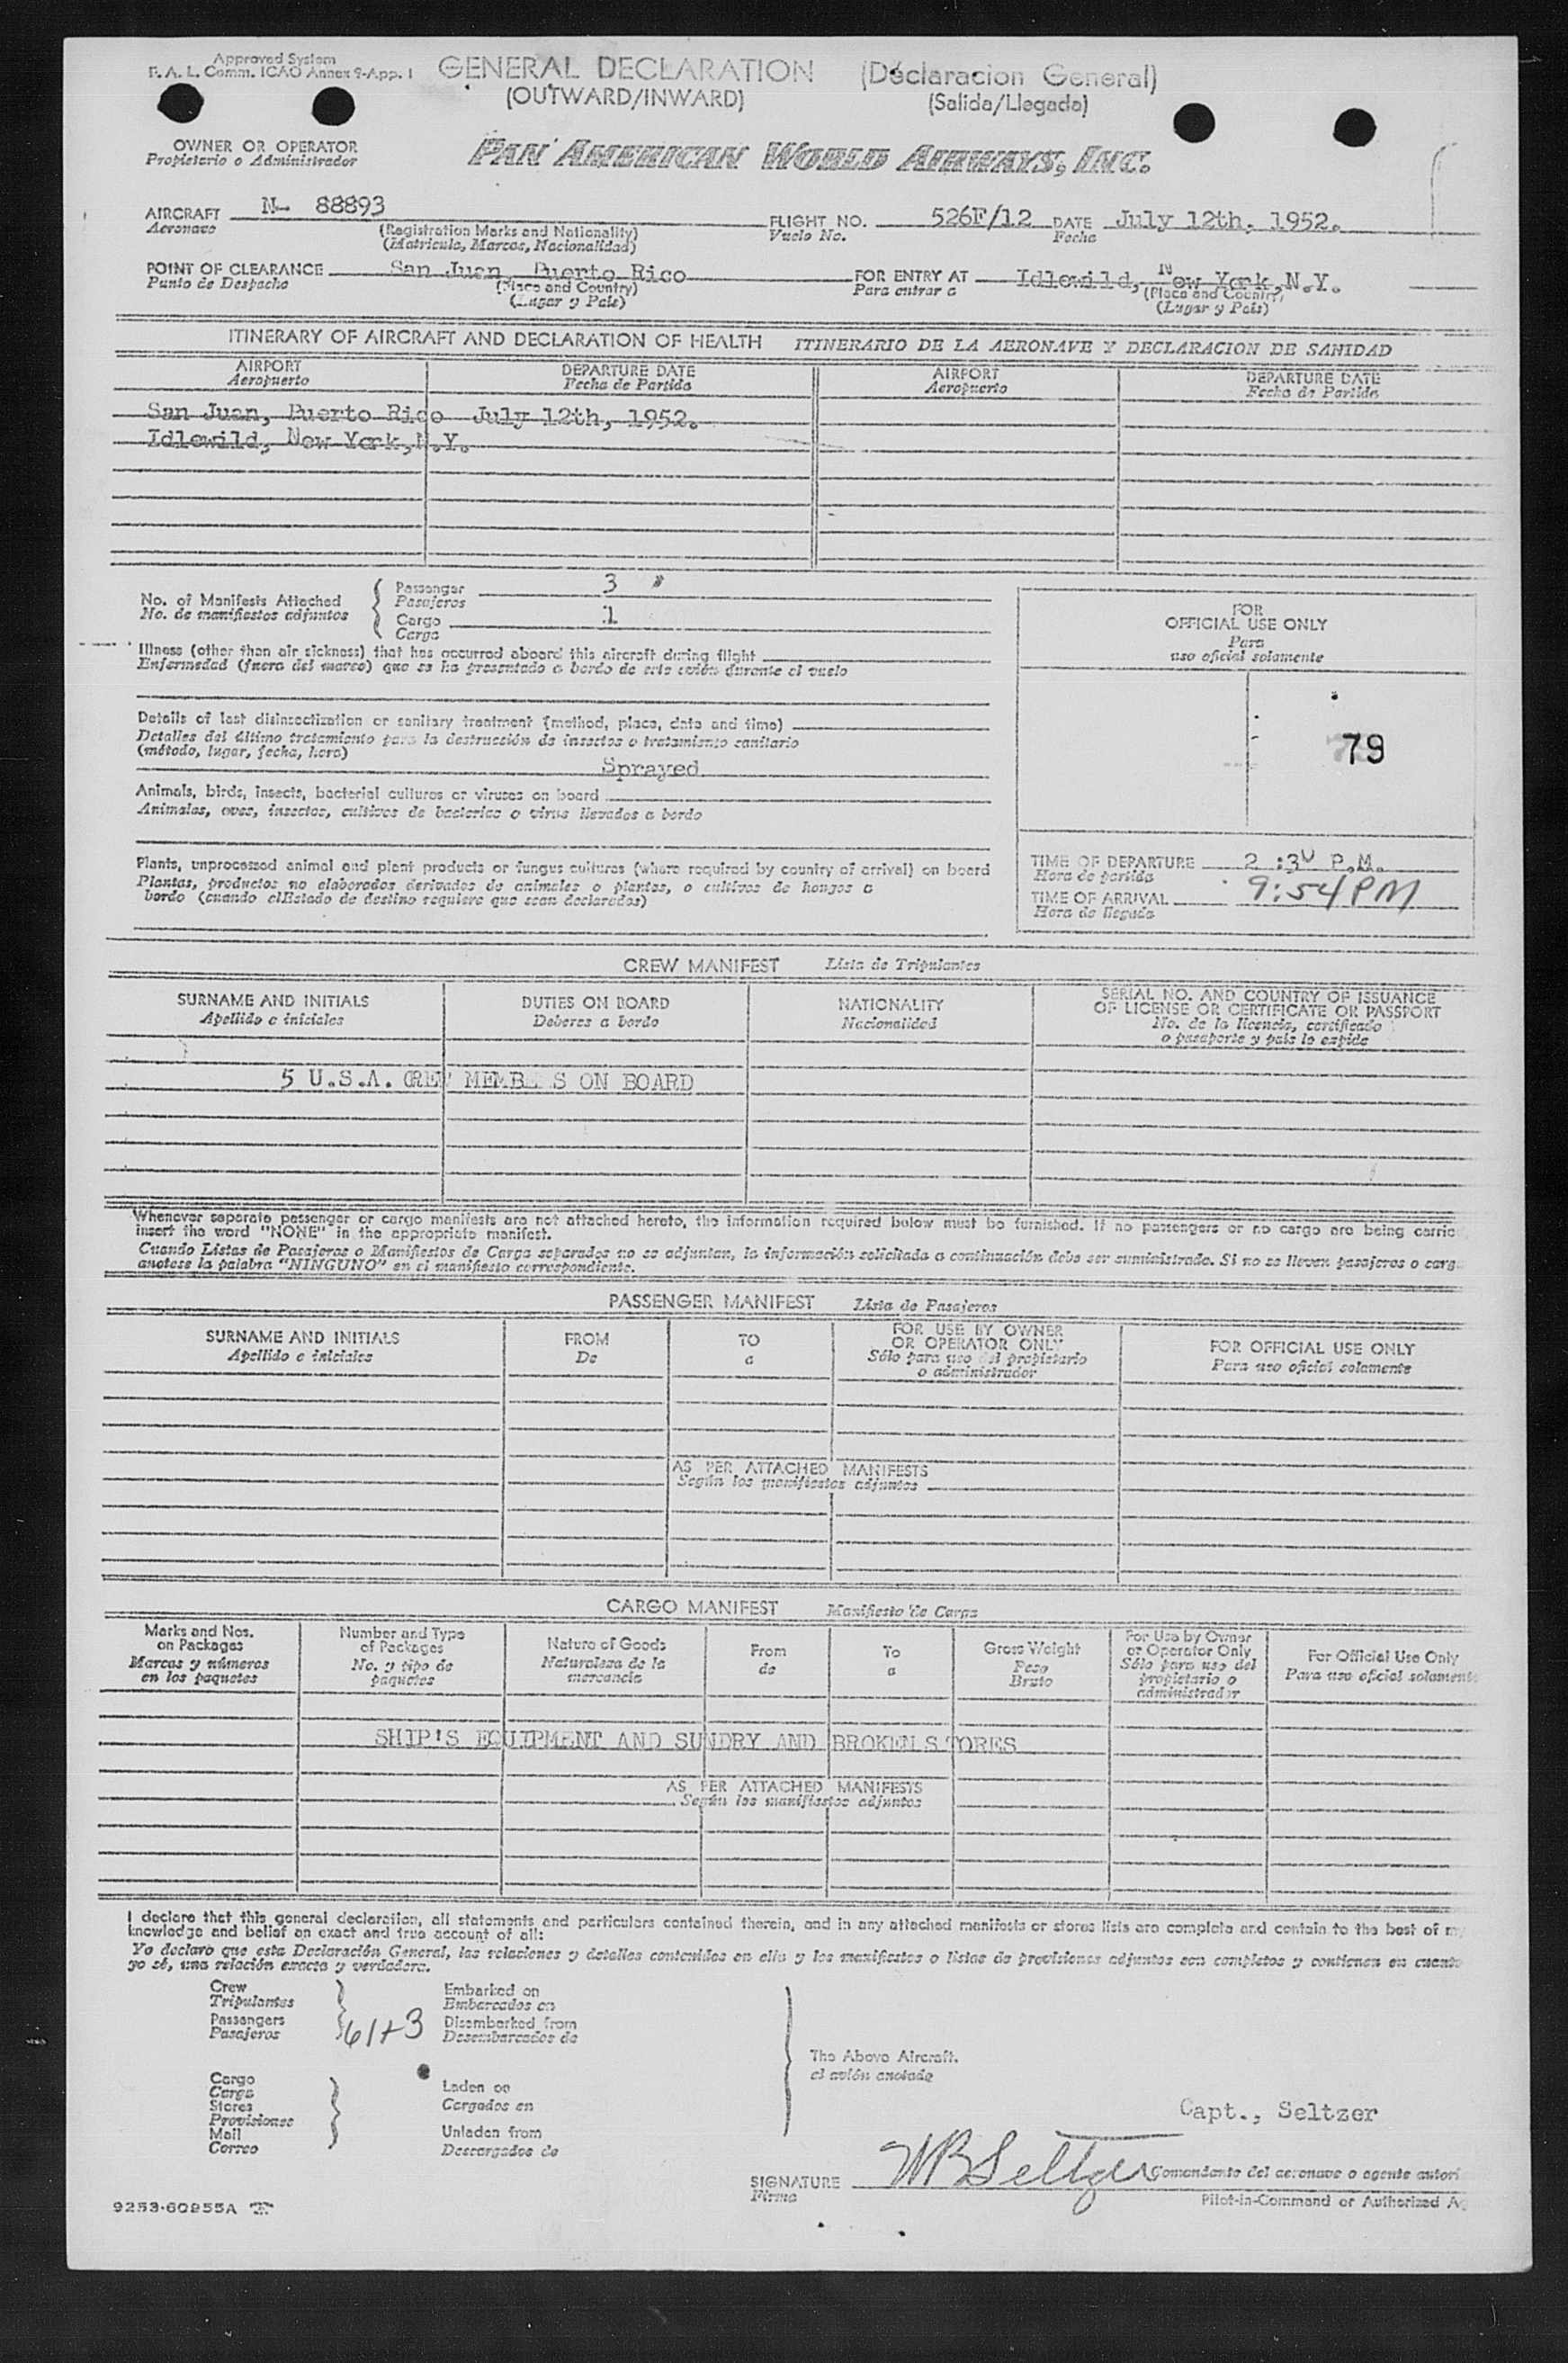 Approved System
F. A. L. Comm. ICAO Annex 9-App. 1
GENERAL DECLARATION (Déclaracion General)
(OUTWARD/INWARD) (Salida/Llegada)
OWNER OR OPERATOR
Propietario o Administrador
PAN AMERICAN WORLD AIRWAYS, INC.
AIRCRAFT N- 88893 FLIGHT NO. 526F/12 DATE July 12th, 1952.
Aeronave Vuelo No. Fecha
(Registration Marks and Nationality)
(Matricula, Marcas, Nacionalidad)
POINT OF CLEARANCE San Juan, Puerto Rico FOR ENTRY AT Idlewild, New York, N.Y.
Punto de Despacho (Place and Country) Para entrar a (Place and Country)
(Lugar y País) (Lugar y País)
ITINERARY OF AIRCRAFT AND DECLARATION OF HEALTH ITINERARIO DE LA AERONAVE Y DECLARACION DE SANIDAD
AIRPORT DEPARTURE DATE AIRPORT DEPARTURE DATE
Aeropuerto Fecha de Partida Aeropuerto Fecha de Partida
San Juan, Puerto Rico July 12th, 1952.
Idlewild, New York, N.Y.
No. of Manifests Attached
No. de manifiestos adjuntos
Passenger 3
Pasajeros
Cargo 1
Carga
Illness (other than air sickness) that has occurred aboard this aircraft during flight
Enfermedad (fuera del mareo) que se ha presentado a bordo de este avión durante el vuelo
Details of last disinsectization or sanitary treatment (method, place, date and time)
Detalles del último tratamiento para la destrucción de insectos o tratamiento sanitario
(método, lugar, fecha, hora)
Sprayed
Animals, birds, insects, bacterial cultures or viruses on board
Animales, aves, insectos, cultivos de bacterias o virus llevados a bordo
Plants, unprocessed animal and plant products or fungus cultures (where required by country of arrival) on board
Plantas, productos no elaborados derivados de animales o plantas, o cultivos de hongos a
bordo (cuando elEstado de destino requiere que sean declarados)
FOR
OFFICIAL USE ONLY
Para
uso oficial solamente
79
TIME OF DEPARTURE 2:30 P.M.
Hora de partida
TIME OF ARRIVAL 9:54 PM
Hora de llegada
CREW MANIFEST Lista de Tripulantes
SURNAME AND INITIALS DUTIES ON BOARD NATIONALITY SERIAL NO. AND COUNTRY OF ISSUANCE
OF LICENSE OR CERTIFICATE OR PASSPORT
Apellido e iniciales Deberes a bordo Nacionalidad No. de la licencia, certificado
o pasaporte y país lo expide
5 U.S.A. CREW MEMBERS ON BOARD
Whenever separate passenger or cargo manifests are not attached hereto, the information required below must be furnished. If no passengers or no cargo are being carrie
insert the word "NONE" in the appropriate manifest.
Cuando Listas de Pasajeros o Manifiestos de Carga separados no se adjuntan, la información solicitada a continuación debe ser suministrada. Si no se llevan pasajeros o carg
anotese la palabra "NINGUNO" en el manifiesto correspondiente.
PASSENGER MANIFEST Lista de Pasajeros
SURNAME AND INITIALS FROM TO FOR USE BY OWNER
OR OPERATOR ONLY FOR OFFICIAL USE ONLY
Apellido e iniciales De a Sólo para uso del propietario
o administrador Para uso oficial solamente
AS PER ATTACHED MANIFESTS
Según los manifiestos adjuntos
CARGO MANIFEST Manifiesto de Carga
Marks and Nos.
on Packages
Marcas y números
en los paquetes
Number and Type
of Packages
No. y tipo de
paquetes
Nature of Goods
Naturaleza de la
mercancía
From
de
To
a
Gross Weight
Peso
Bruto
For Use by Owner
or Operator Only
Sólo para uso del
propietario o
administrador
For Official Use Only
Para uso oficial solamente
SHIP'S EQUIPMENT AND SUNDRY AND BROKEN STORES
AS PER ATTACHED MANIFESTS
Según los manifiestos adjuntos
I declare that this general declaration, all statements and particulars contained therein, and in any attached manifests or stores lists are complete and contain to the best of my
knowledge and belief an exact and true account of all:
Yo declaro que esta Declaración General, las relaciones y detalles contenidos en ella y los manifiestos o listas de provisiones adjuntos son completos y contienen en cuanto
yo sé, una relación exacta y verdadera.
Crew
Tripulantes
Passengers
Pasajeros
61+3
Embarked on
Embarcados en
Disembarked from
Desembarcados de
Cargo
Carga
Stores
Provisiones
Mail
Correo
Laden on
Cargados en
Unladen from
Descargados de
The Above Aircraft.
el avión anotado
Capt., Seltzer
SIGNATURE WB Seltzer
Firma
Comandante del aeronave o agente autori
Pilot-in-Command or Authorized Ag
9253-60955A